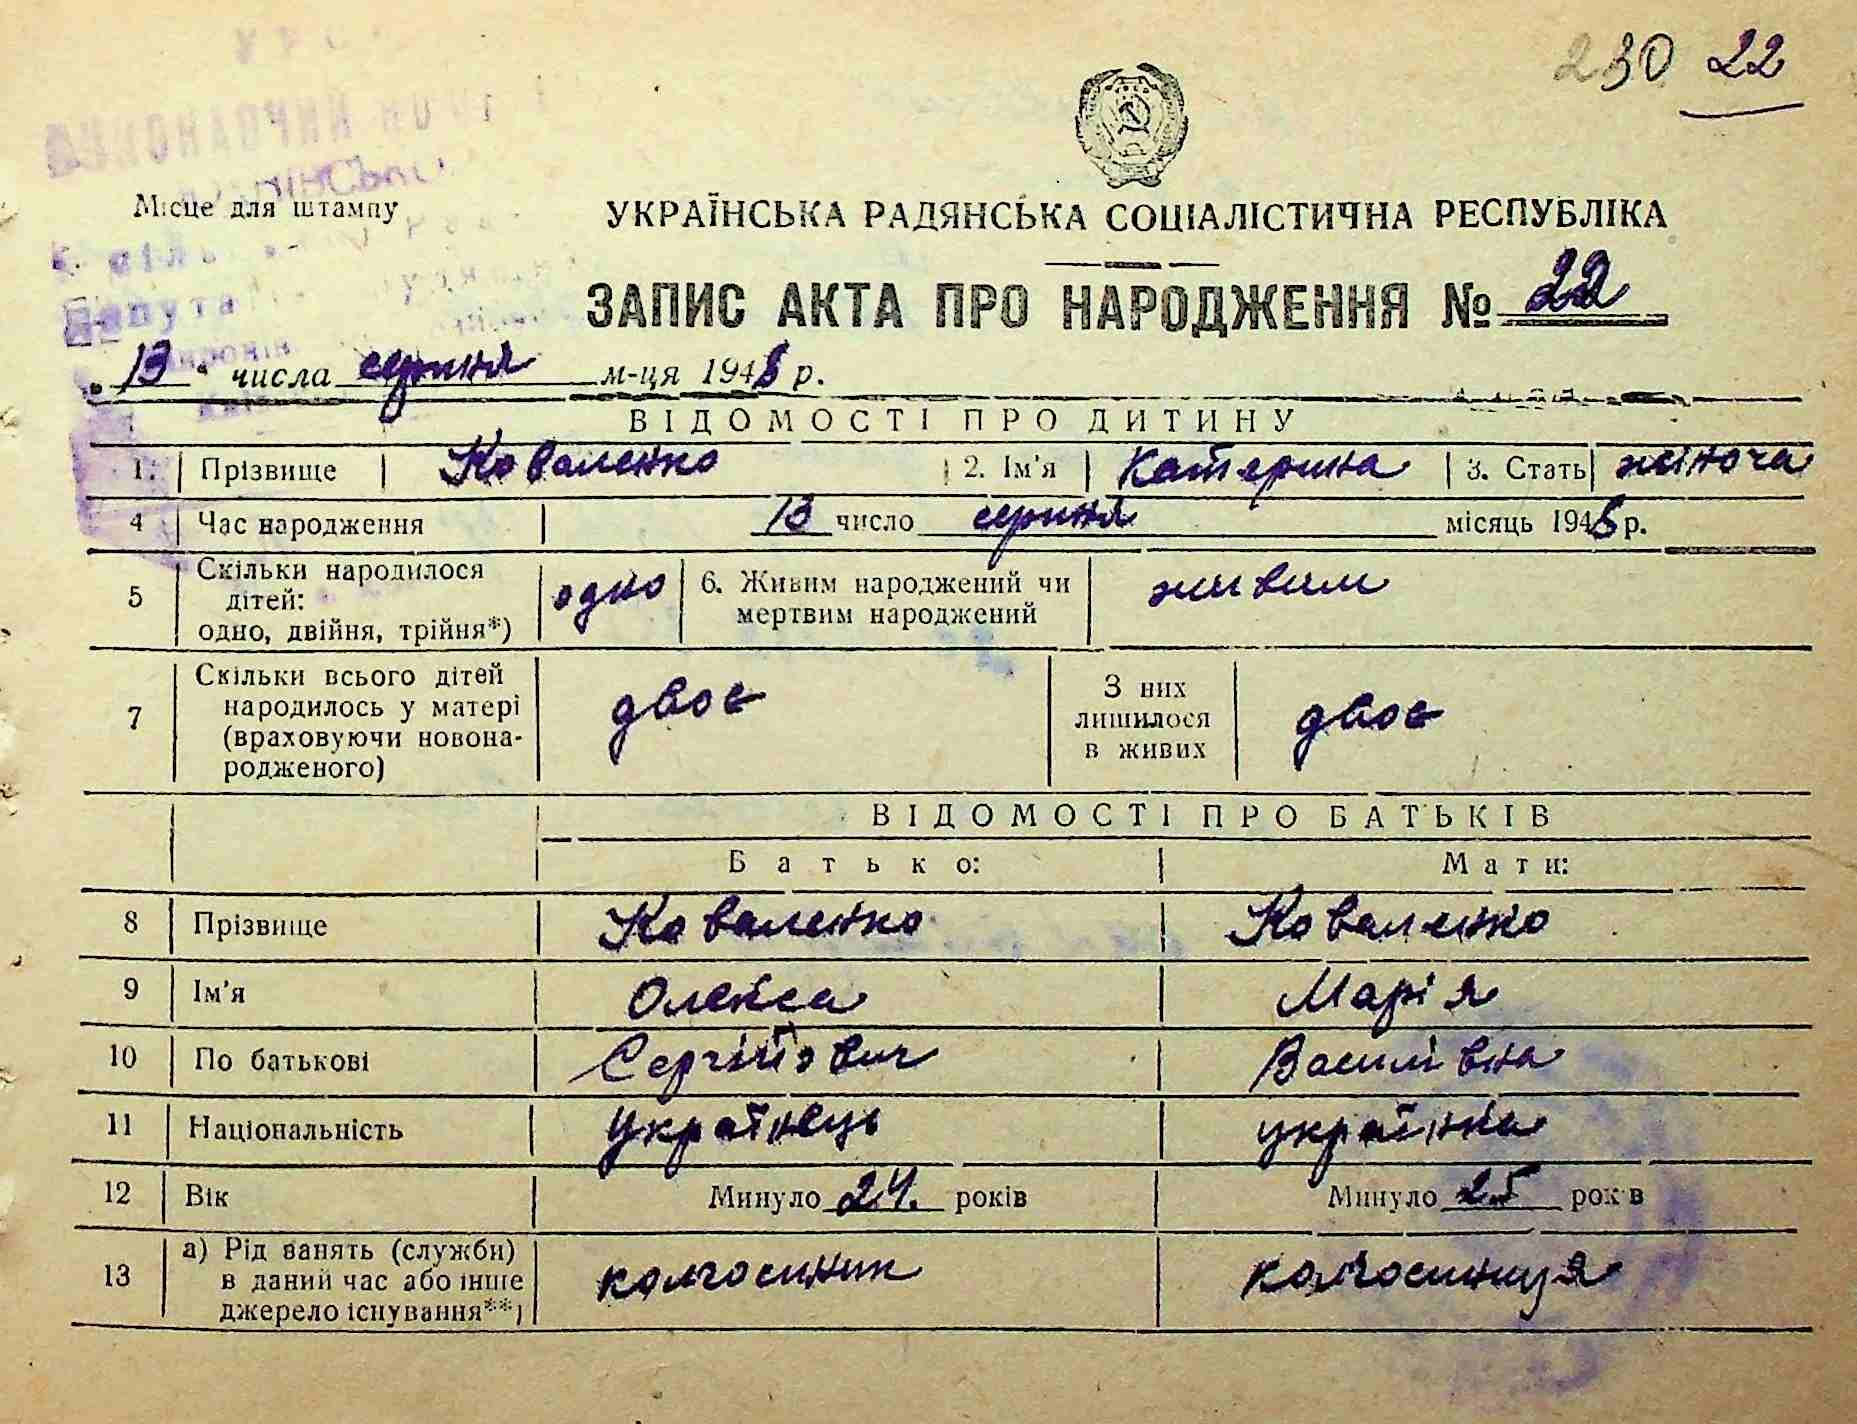 230 22
Місце для штампу
УКРАЇНСЬКА РАДЯНСЬКА СОЦІАЛІСТИЧНА РЕСПУБЛІКА
ЗАПИС АКТА ПРО НАРОДЖЕННЯ № 22
„13“ числа серпня м-ця 1948 р.
ВІДОМОСТІ ПРО ДИТИНУ
1. Прізвище Коваленко 2. Ім'я Катерина 3. Стать жіноча
4 Час народження 13 число серпня місяць 1948 р.
5 Скільки народилося дітей: одно, двійня, трійня*) одно 6. Живим народжений чи мертвим народжений живим
7 Скільки всього дітей народилось у матері (враховуючи новонародженого) двоє З них лишилося в живих двоє
ВІДОМОСТІ ПРО БАТЬКІВ
Батько: Мати:
8 Прізвище Коваленко Коваленко
9 Ім'я Олекса Марія
10 По батькові Сергійович Василівна
11 Національність українець українка
12 Вік Минуло 24. років Минуло 25 років
13 а) Рід занять (служби) в даний час або інше джерело існування**) колгоспник колгоспниця